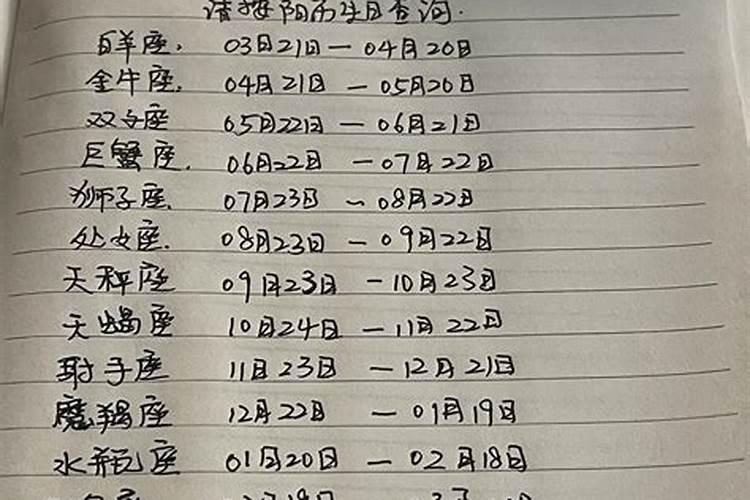 请按阳历生日查询.
白羊座. 03月21日 — 04月20日
金牛座. 04月21日 — 05月20日
双子座 05月22日 — 06月21日
巨蟹座. 06月22日 — 07月22日
狮子座. 07月23日 — 08月22日
处女座. 08月23日 — 09月22日
天秤座 09月23日 — 10月23日
天蝎座 10月24日 — 11月22日
射手座 11月23日 — 12月21日
魔羯座 12月22日 — 01月19日
水瓶座 01月20日 — 02月18日